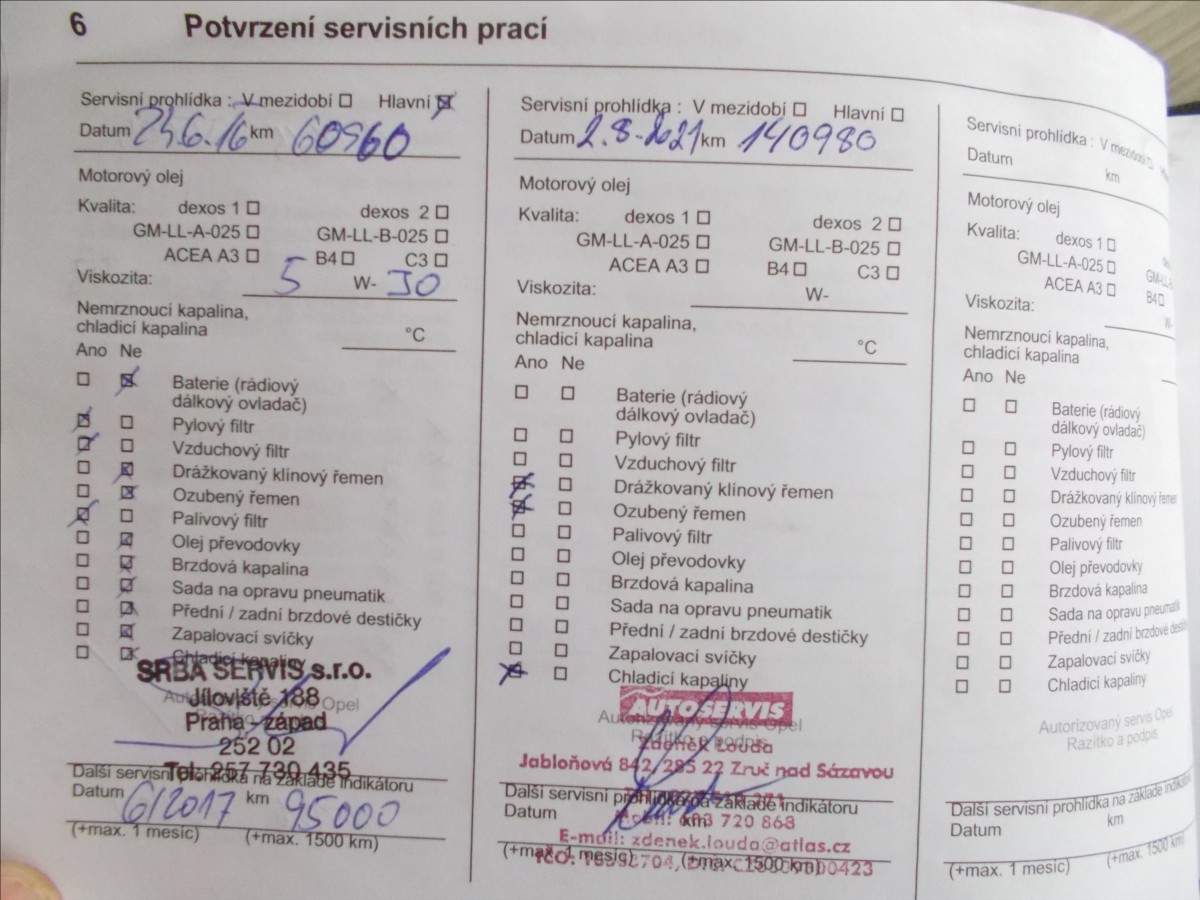 6 Potvrzení servisních prací
Servisní prohlídka : V mezidobí ☐ Hlavní ☒
Datum 23.6.16 km 60960
Motorový olej
Kvalita: dexos 1 ☐ dexos 2 ☐
GM-LL-A-025 ☐ GM-LL-B-025 ☐
ACEA A3 ☐ B4 ☐ C3 ☐
Viskozita: 5 W- 30
Nemrznoucí kapalina,
chladicí kapalina °C
Ano Ne
☐ ☒ Baterie (rádiový
dálkový ovladač)
☒ ☐ Pylový filtr
☒ ☐ Vzduchový filtr
☐ ☒ Drážkovaný klínový řemen
☐ ☒ Ozubený řemen
☒ ☐ Palivový filtr
☐ ☒ Olej převodovky
☐ ☒ Brzdová kapalina
☐ ☒ Sada na opravu pneumatik
☐ ☒ Přední / zadní brzdové destičky
☐ ☒ Zapalovací svíčky
☐ ☒ Chladicí kapaliny
SRBA SERVIS s.r.o.
Jíloviště 188
Praha - západ
252 02
Tel.: 257 730 435
Další servisní prohlídka na základě indikátoru
Datum 6/2017 km 95000
(+max. 1 měsíc) (+max. 1500 km)
Servisní prohlídka : V mezidobí ☐ Hlavní ☐
Datum 2.8.2021 km 140980
Motorový olej
Kvalita: dexos 1 ☐ dexos 2 ☐
GM-LL-A-025 ☐ GM-LL-B-025 ☐
ACEA A3 ☐ B4 ☐ C3 ☐
Viskozita: W-
Nemrznoucí kapalina,
chladicí kapalina °C
Ano Ne
☐ ☐ Baterie (rádiový
dálkový ovladač)
☐ ☐ Pylový filtr
☐ ☐ Vzduchový filtr
☒ ☐ Drážkovaný klínový řemen
☒ ☐ Ozubený řemen
☐ ☐ Palivový filtr
☐ ☐ Olej převodovky
☐ ☐ Brzdová kapalina
☐ ☐ Sada na opravu pneumatik
☐ ☐ Přední / zadní brzdové destičky
☐ ☐ Zapalovací svíčky
☒ ☐ Chladicí kapaliny
AUTOSERVIS
Autorizovaný servis Opel
Razítko a podpis
Zdeněk Louda
Jabloňová 842, 285 22 Zruč nad Sázavou
Další servisní prohlídka na základě indikátoru
Datum km
720 868
E-mail: zdenek.louda@atlas.cz
(+max. 1 měsíc) (+max. 1500 km)
Servisní prohlídka : V mezidobí ☐
Datum km
Motorový olej
Kvalita: dexos 1 ☐
GM-LL-A-025 ☐
ACEA A3 ☐ B4 ☐
Viskozita: W-
Nemrznoucí kapalina,
chladicí kapalina
Ano Ne
☐ ☐ Baterie (rádiový
dálkový ovladač)
☐ ☐ Pylový filtr
☐ ☐ Vzduchový filtr
☐ ☐ Drážkovaný klínový řemen
☐ ☐ Ozubený řemen
☐ ☐ Palivový filtr
☐ ☐ Olej převodovky
☐ ☐ Brzdová kapalina
☐ ☐ Sada na opravu pneumatik
☐ ☐ Přední / zadní brzdové
☐ ☐ Zapalovací svíčky
☐ ☐ Chladicí kapaliny
Autorizovaný servis Opel
Razítko a podpis
Další servisní prohlídka na základě
Datum km
(+max. 1 měsíc) (+max. 1500 km)